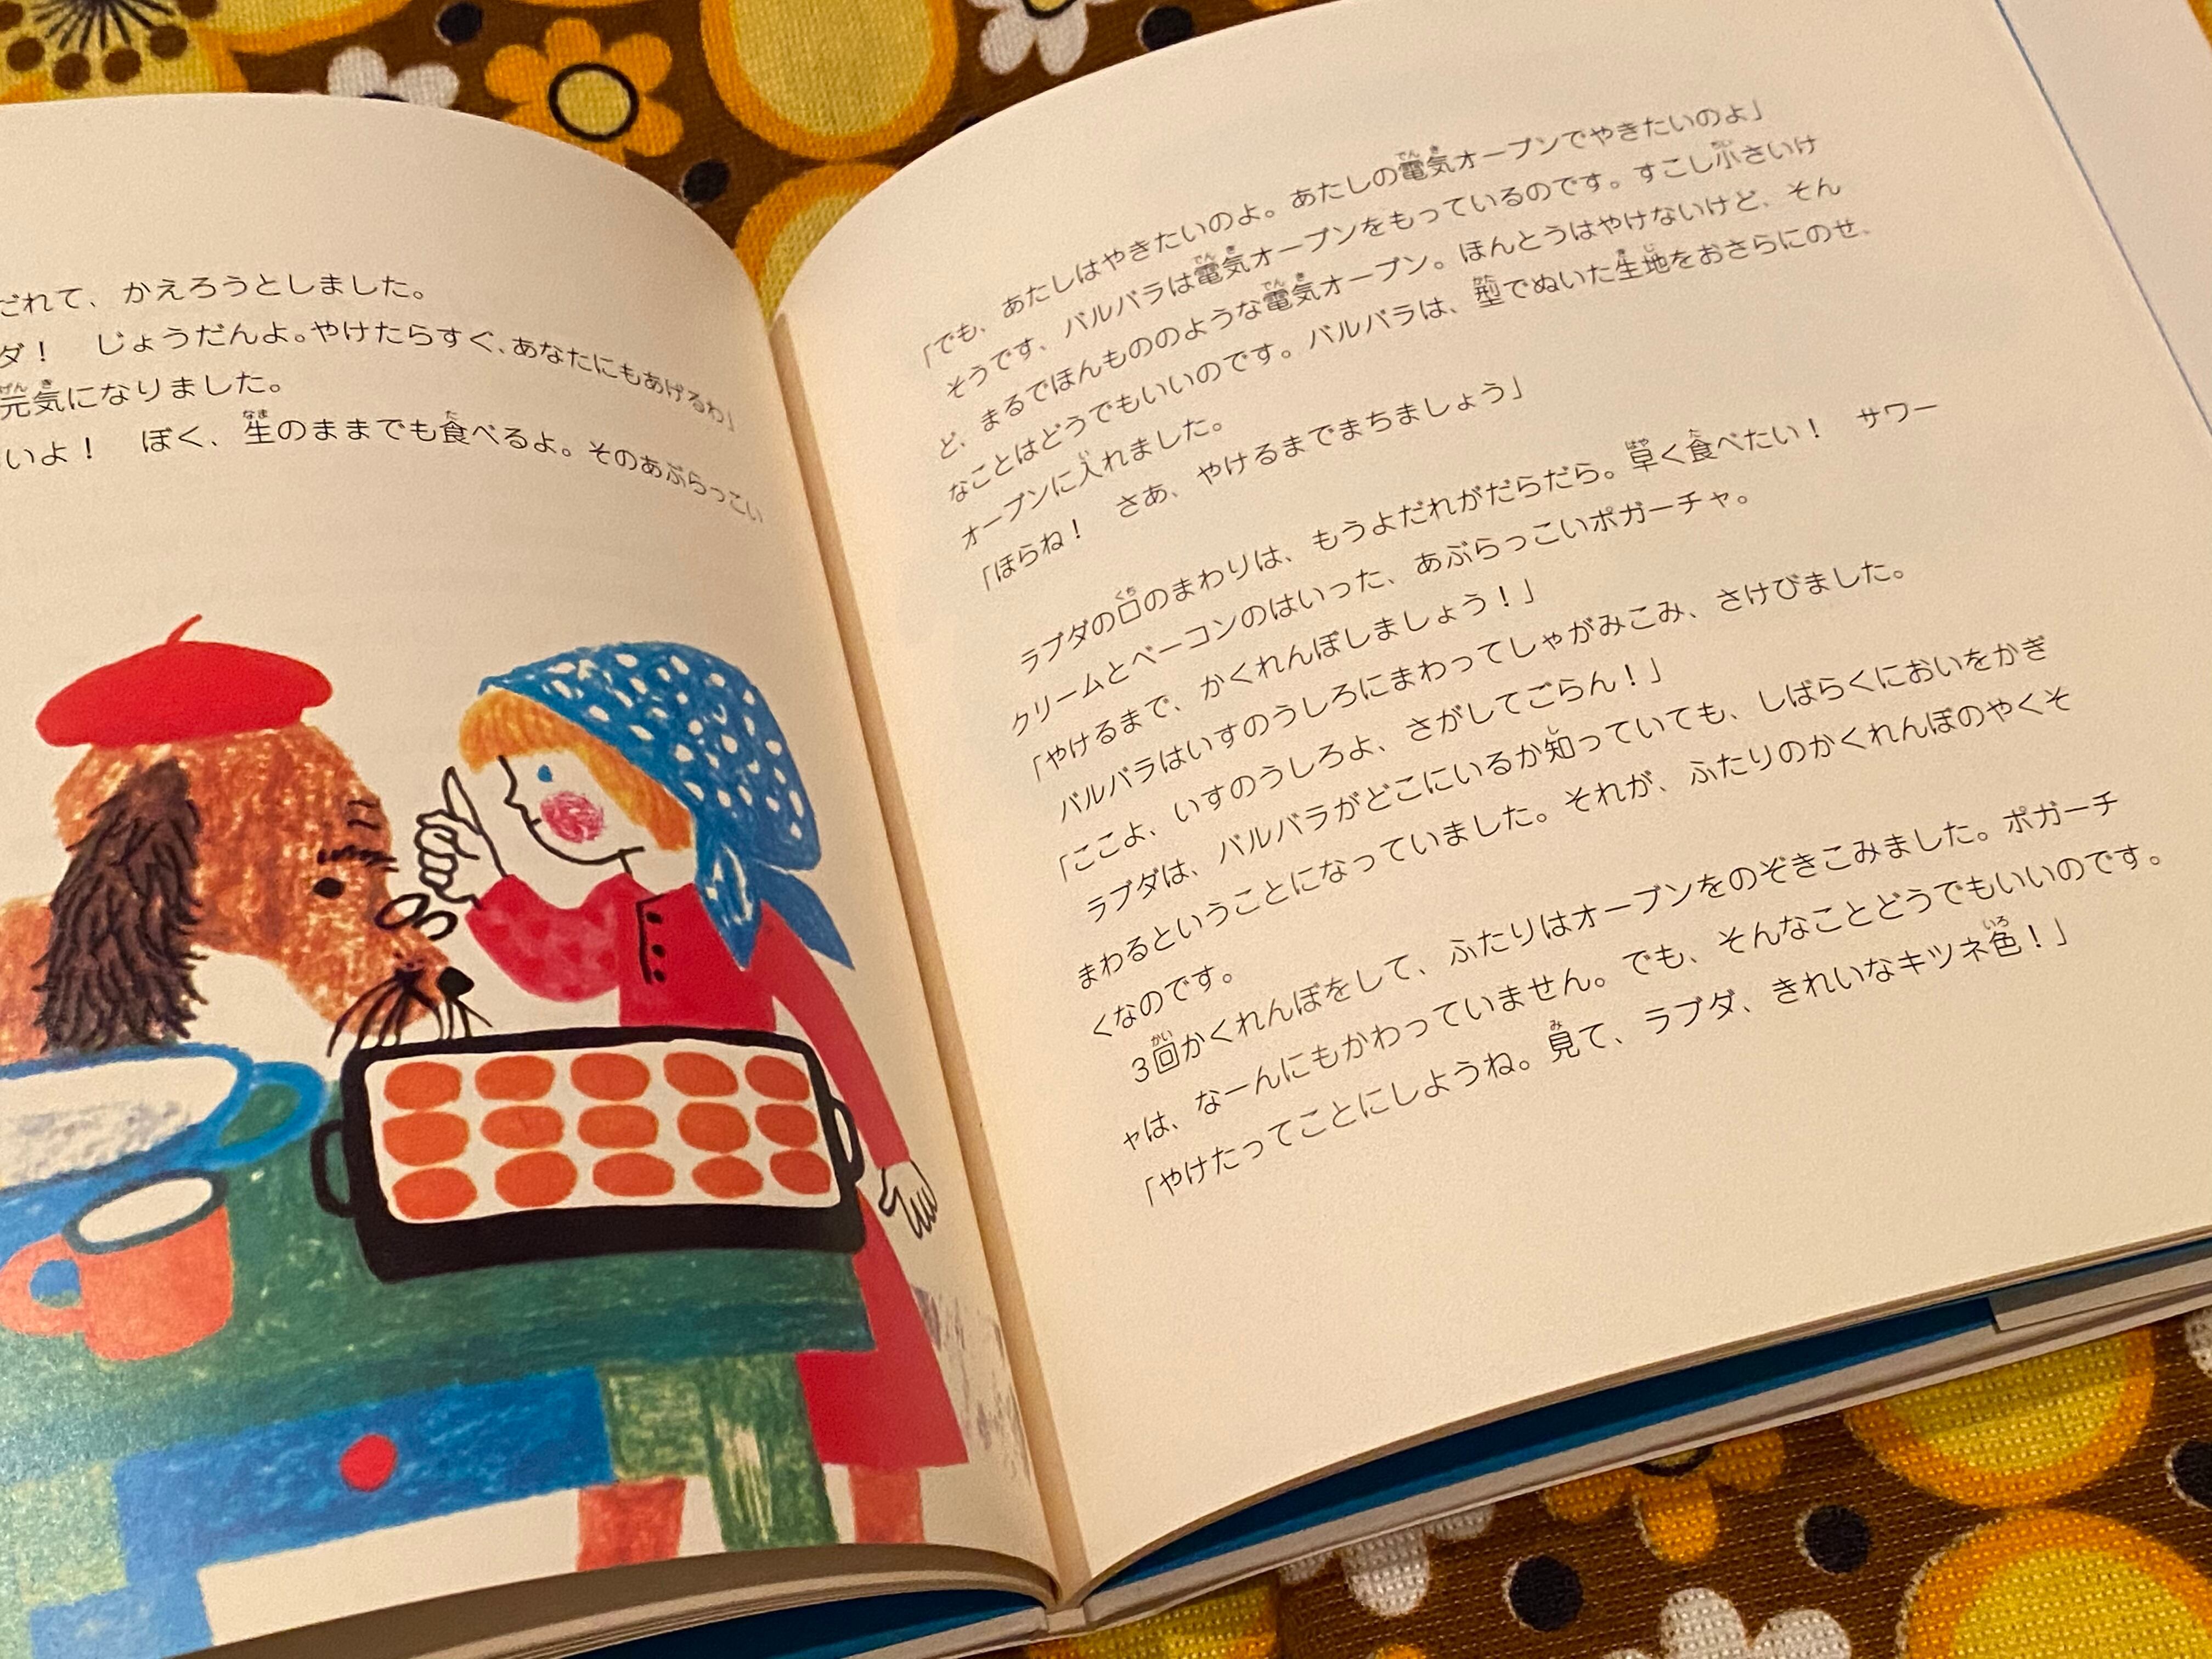 だれて、かえろうとしました。
ダ！　じょうだんよ。やけたらすぐ、あなたにもあげるわ」
元気になりました。
いよ！　ぼく、生のままでも食べるよ。そのあぶらっこい
「でも、あたしはやきたいのよ。あたしの電気オーブンでやきたいのよ」
そうです、バルバラは電気オーブンをもっているのです。すこし小さいけ
ど、まるでほんもののような電気オーブン。ほんとうはやけないけど、そん
なことはどうでもいいのです。バルバラは、型でぬいた生地をおさらにのせ、
オーブンに入れました。
「ほらね！　さあ、やけるまでまちましょう」
ラブダの口のまわりは、もうよだれがだらだら。早く食べたい！　サワー
クリームとベーコンのはいった、あぶらっこいポガーチャ。
「やけるまで、かくれんぼしましょう！」
バルバラはいすのうしろにまわってしゃがみこみ、さけびました。
「ここよ、いすのうしろよ、さがしてごらん！」
ラブダは、バルバラがどこにいるか知っていても、しばらくにおいをかぎ
まわるということになっていました。それが、ふたりのかくれんぼのやくそ
くなのです。
3回かくれんぼをして、ふたりはオーブンをのぞきこみました。ポガーチ
ャは、なーんにもかわっていません。でも、そんなことどうでもいいのです。
「やけたってことにしようね。見て、ラブダ、きれいなキツネ色！」